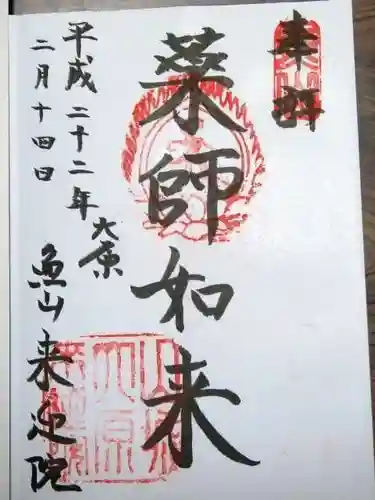 奉拝
薬師如来
平成二十二年
二月十四日
大原
魚山来迎院